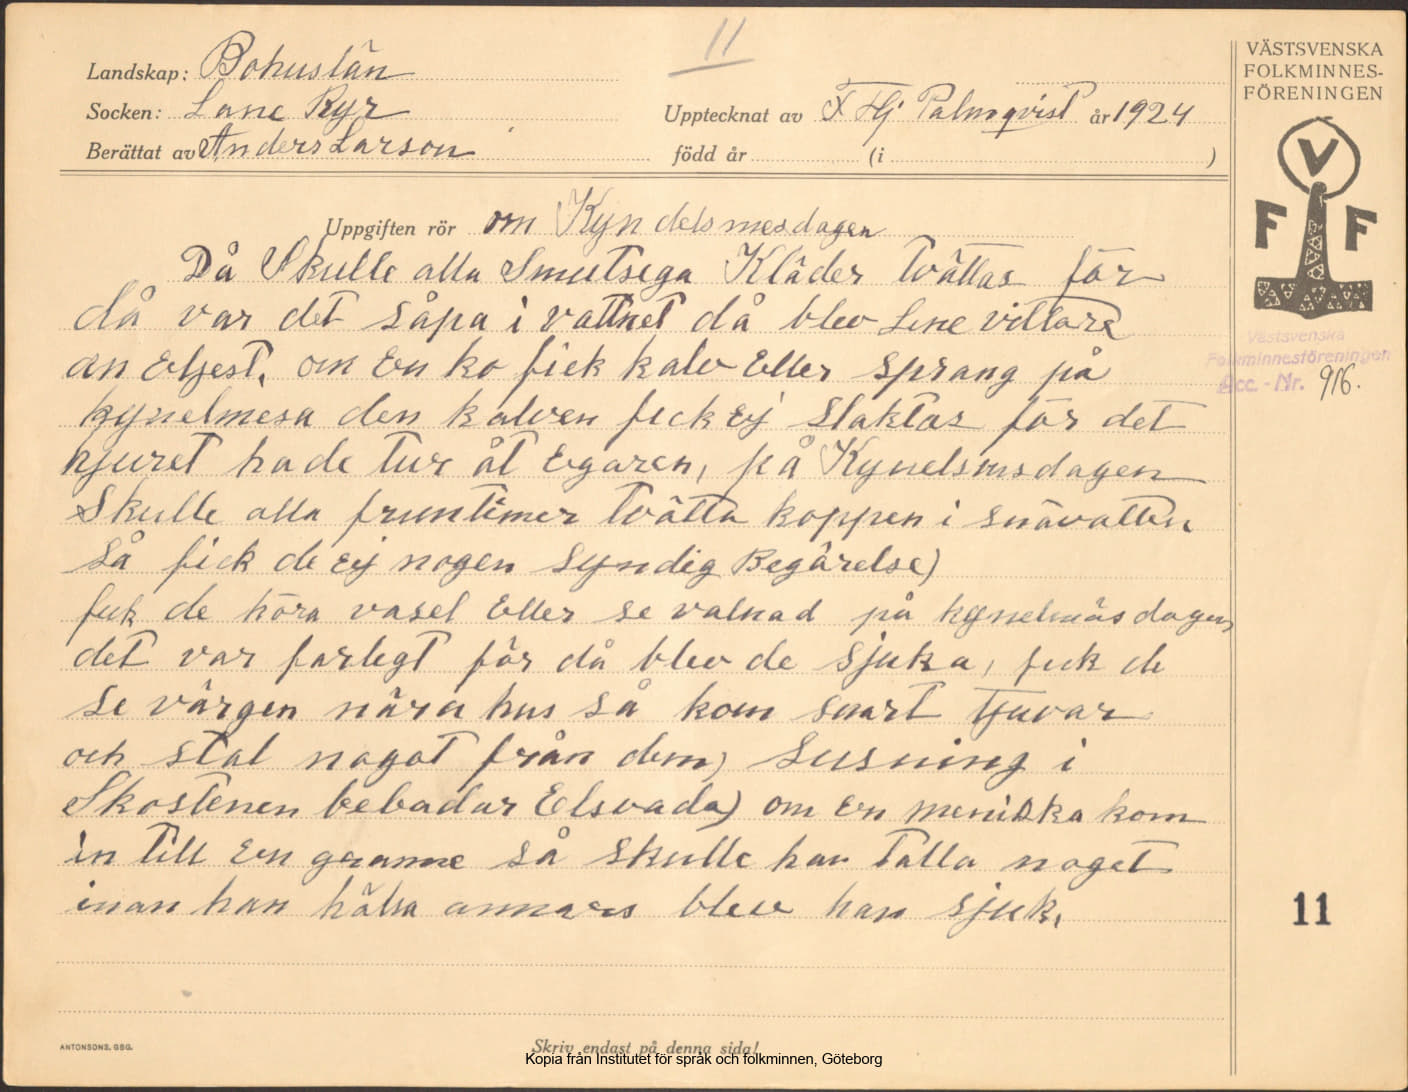 11
VÄSTSVENSKA
FOLKMINNES-
FÖRENINGEN
Landskap: Bohuslän
Socken: Lane Ryr
Upptecknat av F Hj Palmqvist år 1924
Berättat av Anders Larson
född år (i )
V
F F
Uppgiften rör om Kyndelsmesdagen
Då Skulle alla Smutsega Kläder tvättas för
då var det såpa i vattnet då blev Line vittare
än Eljest, om En ko fick kalv Eller sprang på
kynelmesa den kalven fick Ej Slaktas för det
kjuret hade tur åt Egaren, på Kynelsmsdagen
Skulle alla fruntimer tvätta koppen i snävatten
så fick de Ej nogen Syndig Begärelse)
fick de höra vasel Eller se valnad på kynelmäsdagen
det var farligt för då blev de sjuka, fick de
se värgen nära hus så kom snart tjuvar
och stal nagot från dem) Susning i
Skostenen bebadar Elsvada) om En meniska kom
in till En granne så skulle han talla noget
inan han hälsa annars blev han sjuk,
Västsvenska
Folkminnesföreningen
Acc.-Nr. 916.
11
ANTONSONS, GBG.
Skriv endast på denna sida!
Kopia från Institutet för språk och folkminnen, Göteborg